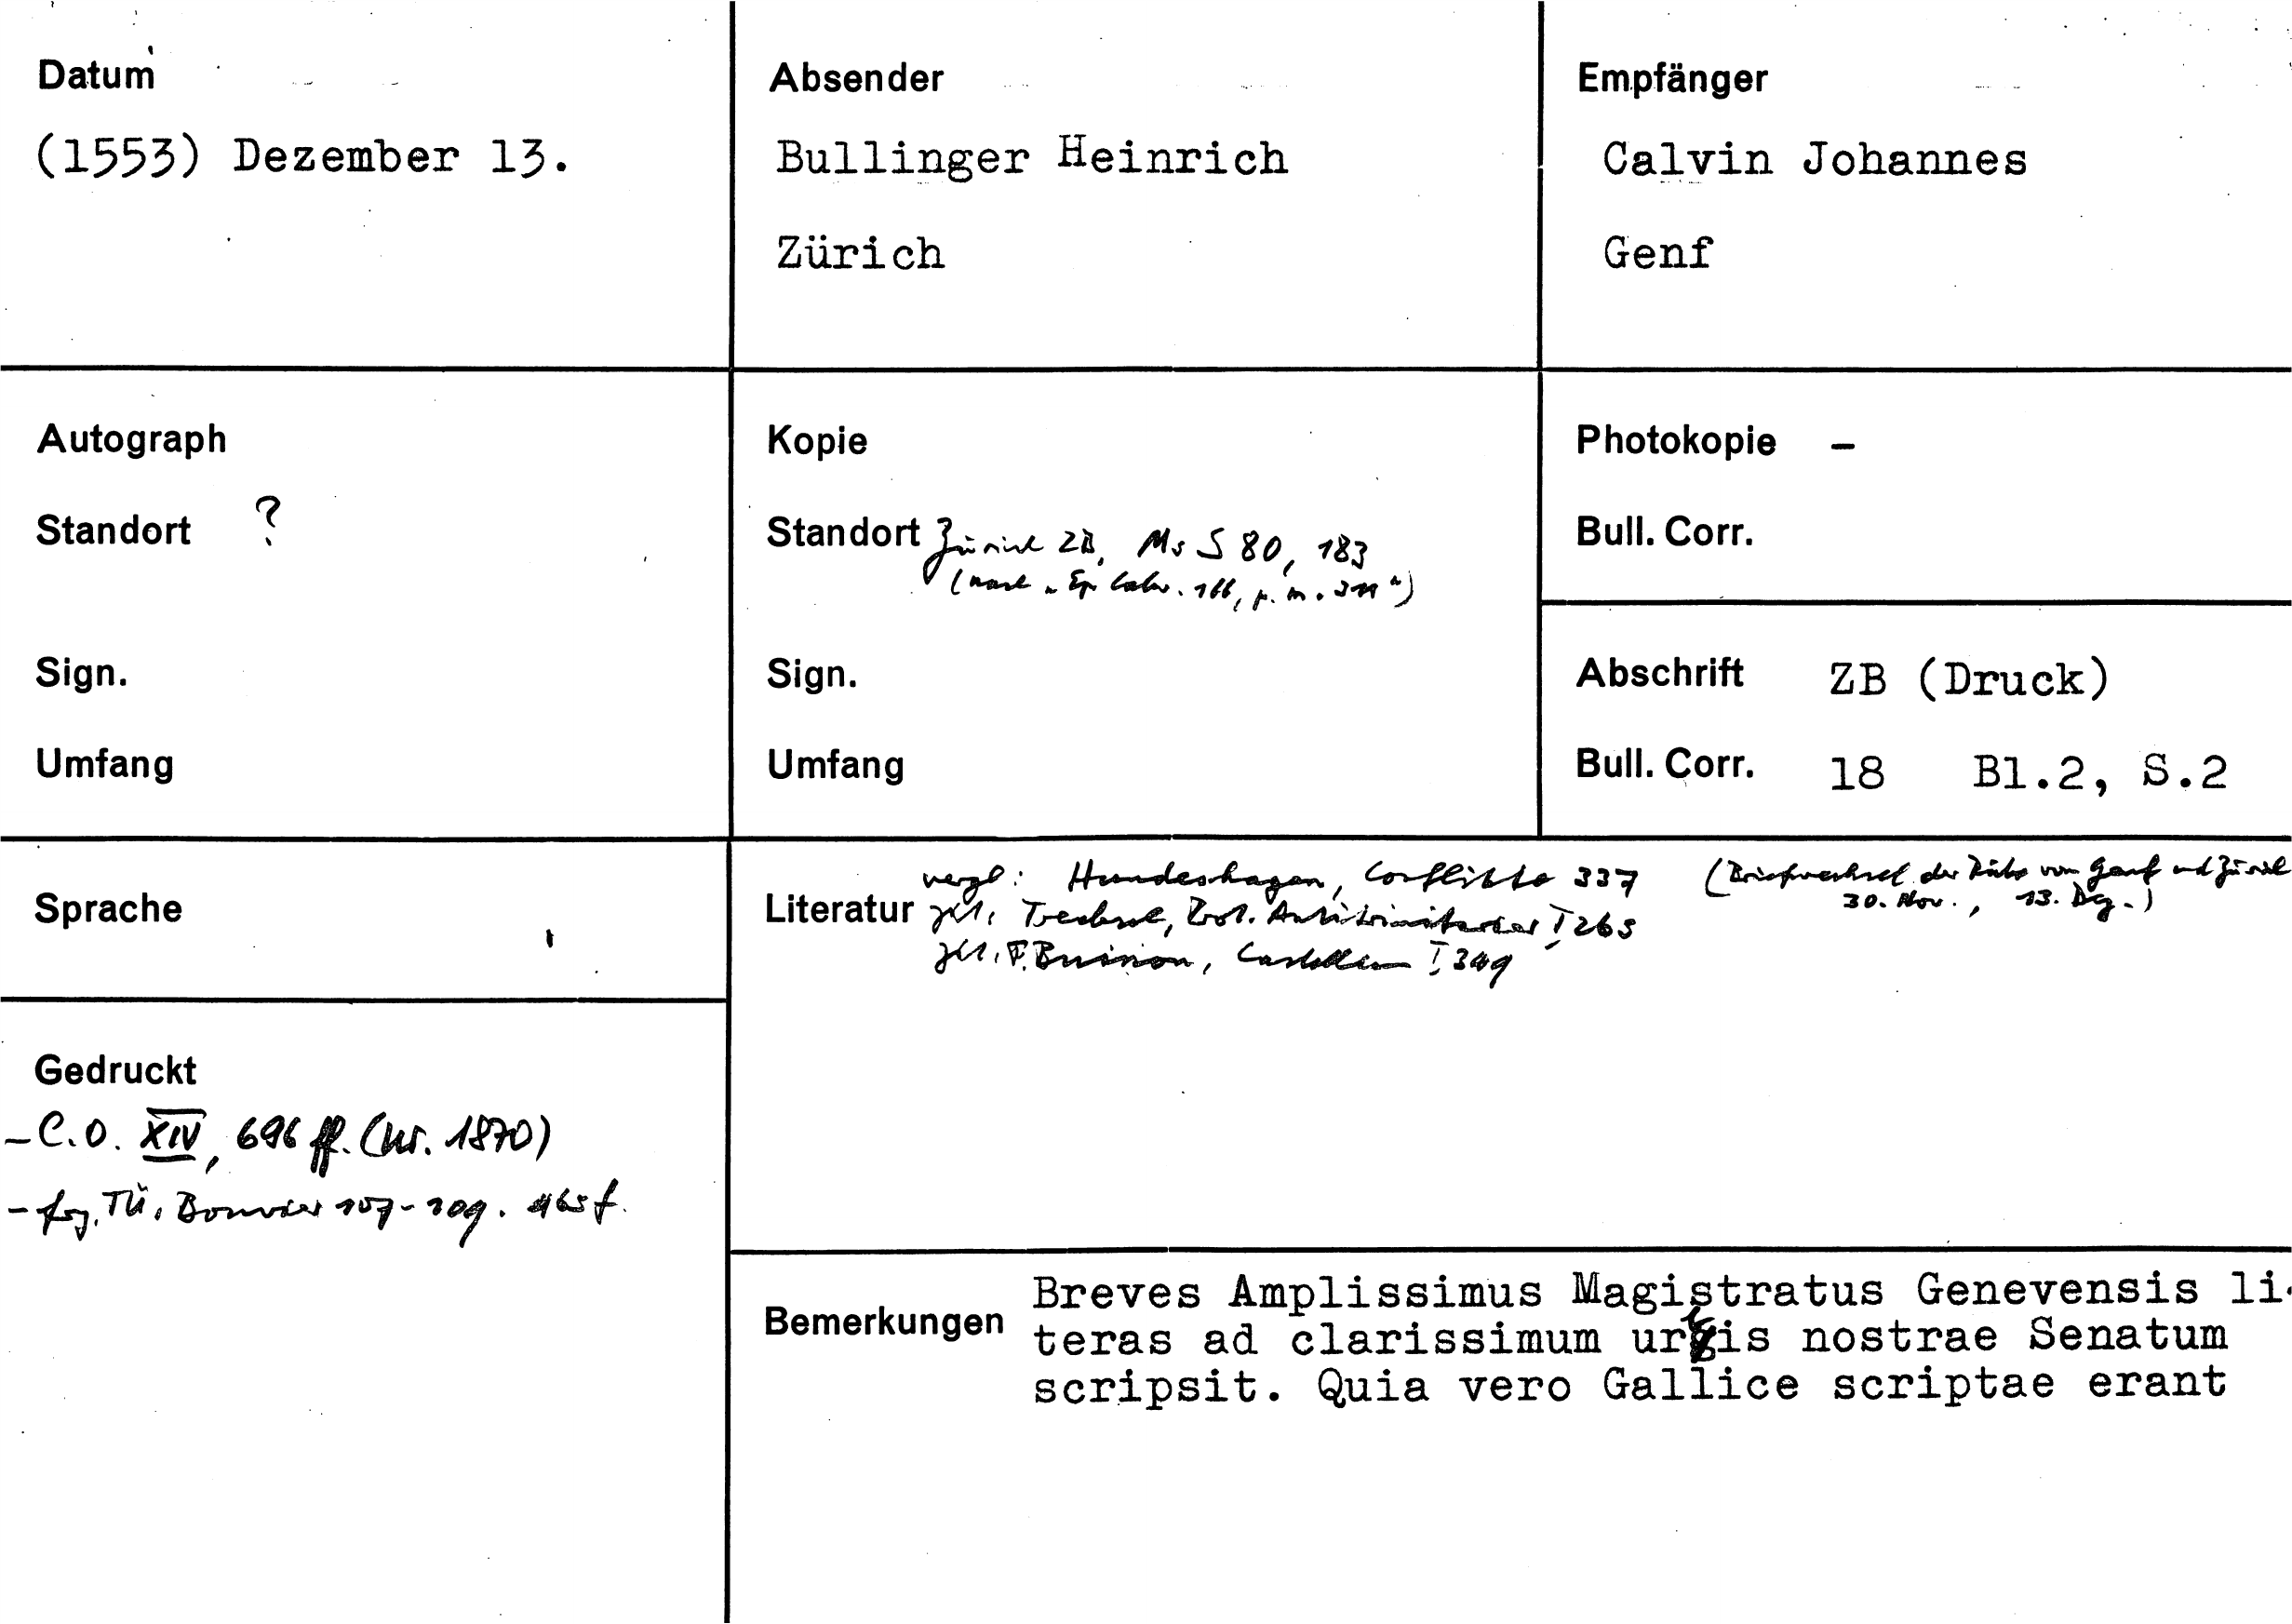 Datum
(1553) Dezember 13.
Absender
Bullinger Heinrich
Zürich
Empfänger
Calvin Johannes
Genf
Autograph
Standort ?
Sign.
Umfang
Kopie
Standort Zürich ZB, Ms S 80, 183
(nach "Ep. Calv. 166, p. m. 311")
Sign.
Umfang
Photokopie –
Bull. Corr.
Abschrift ZB (Druck)
Bull. Corr. 18 Bl.2, S.2
Sprache
Gedruckt
- C.O. XIV, 696 ff. (Nr. 1870)
- frz. TÜ. Bouvier 107-109. 465 f.
Literatur vergl: Hundeshagen, Conflikte 337 (Briefwechsel der Räte von Genf und Zürich
30. Nov., 13. Dez.)
zit. Trechsel, Prot. Antitrinitarier I, 265
zit. F. Buisson, Castellion I, 349
Bemerkungen
Breves Amplissimus Magistratus Genevensis li
teras ad clarissimum urbis nostrae Senatum
scripsit. Quia vero Gallice scriptae erant